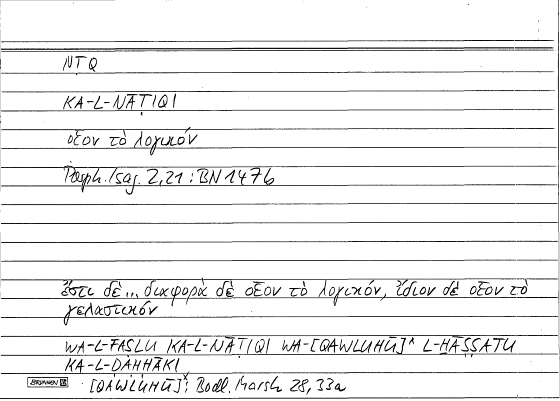 NṬQ
KA-L-NĀṬIQI
οἷον τὸ λογικόν
Porph. Isag. 2,21 : BN 1476
ἔστι δὲ ... διαφορὰ δὲ οἷον τὸ λογικόν, ἴδιον δὲ οἷον τὸ
γελαστικόν
WA-L-FAṢLU KA-L-NĀṬIQI WA-[QAWLUHŪ]^ L-ḪĀṢṢATU
KA-L-ḌAḤḤĀKI
BRUNNEN [QAWLUHŪ]^: Bodl. Marsh 28,33a